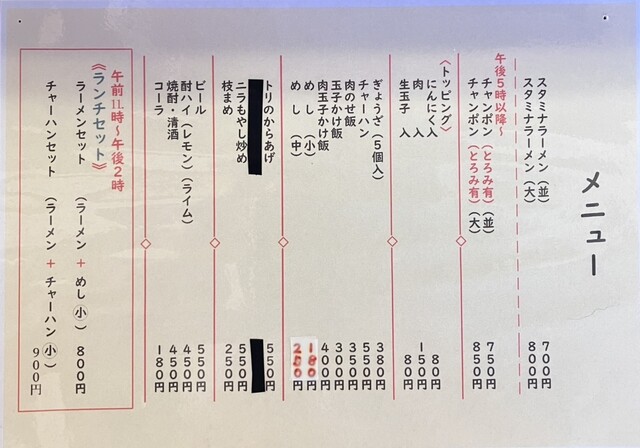 メニュー
スタミナラーメン(並) 700円
スタミナラーメン(大) 800円
午後5時以降~
チャンポン(とろみ有)(並) 750円
チャンポン(とろみ有)(大) 850円
〈トッピング〉
にんにく入 80円
肉 入 150円
生玉子 入 80円
ぎょうざ(5個入) 380円
チャーハン 550円
肉のせ飯 350円
玉子かけ飯 300円
肉玉子かけ飯 400円
めし(小) 180円
めし(中)
トリのからあげ 550円
ニラもやし炒め 550円
枝まめ 250円
ビール 550円
酎ハイ(レモン)(ライム) 450円
焼酎・清酒 450円
コーラ 180円
午前11時~午後2時
《ランチセット》
ラーメンセット (ラーメン+めし小) 800円
チャーハンセット (ラーメン+チャーハン小) 900円